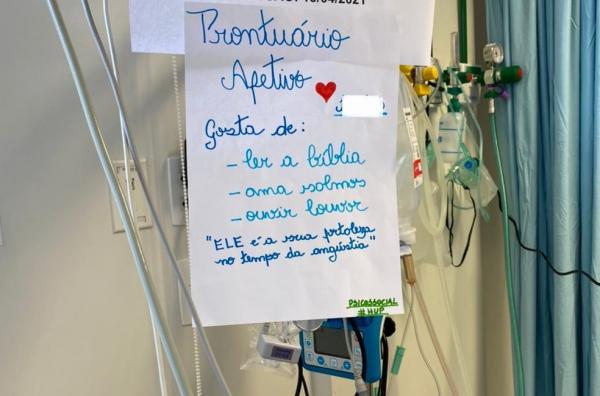 10/04/2021
Prontuário
Afetivo
Gosta de:
- ler a bíblia
- ama salmos
- ouvir louvor
"ELE é a sua fortaleza
no tempo da angústia"
PSICOSSOCIAL
#HUP